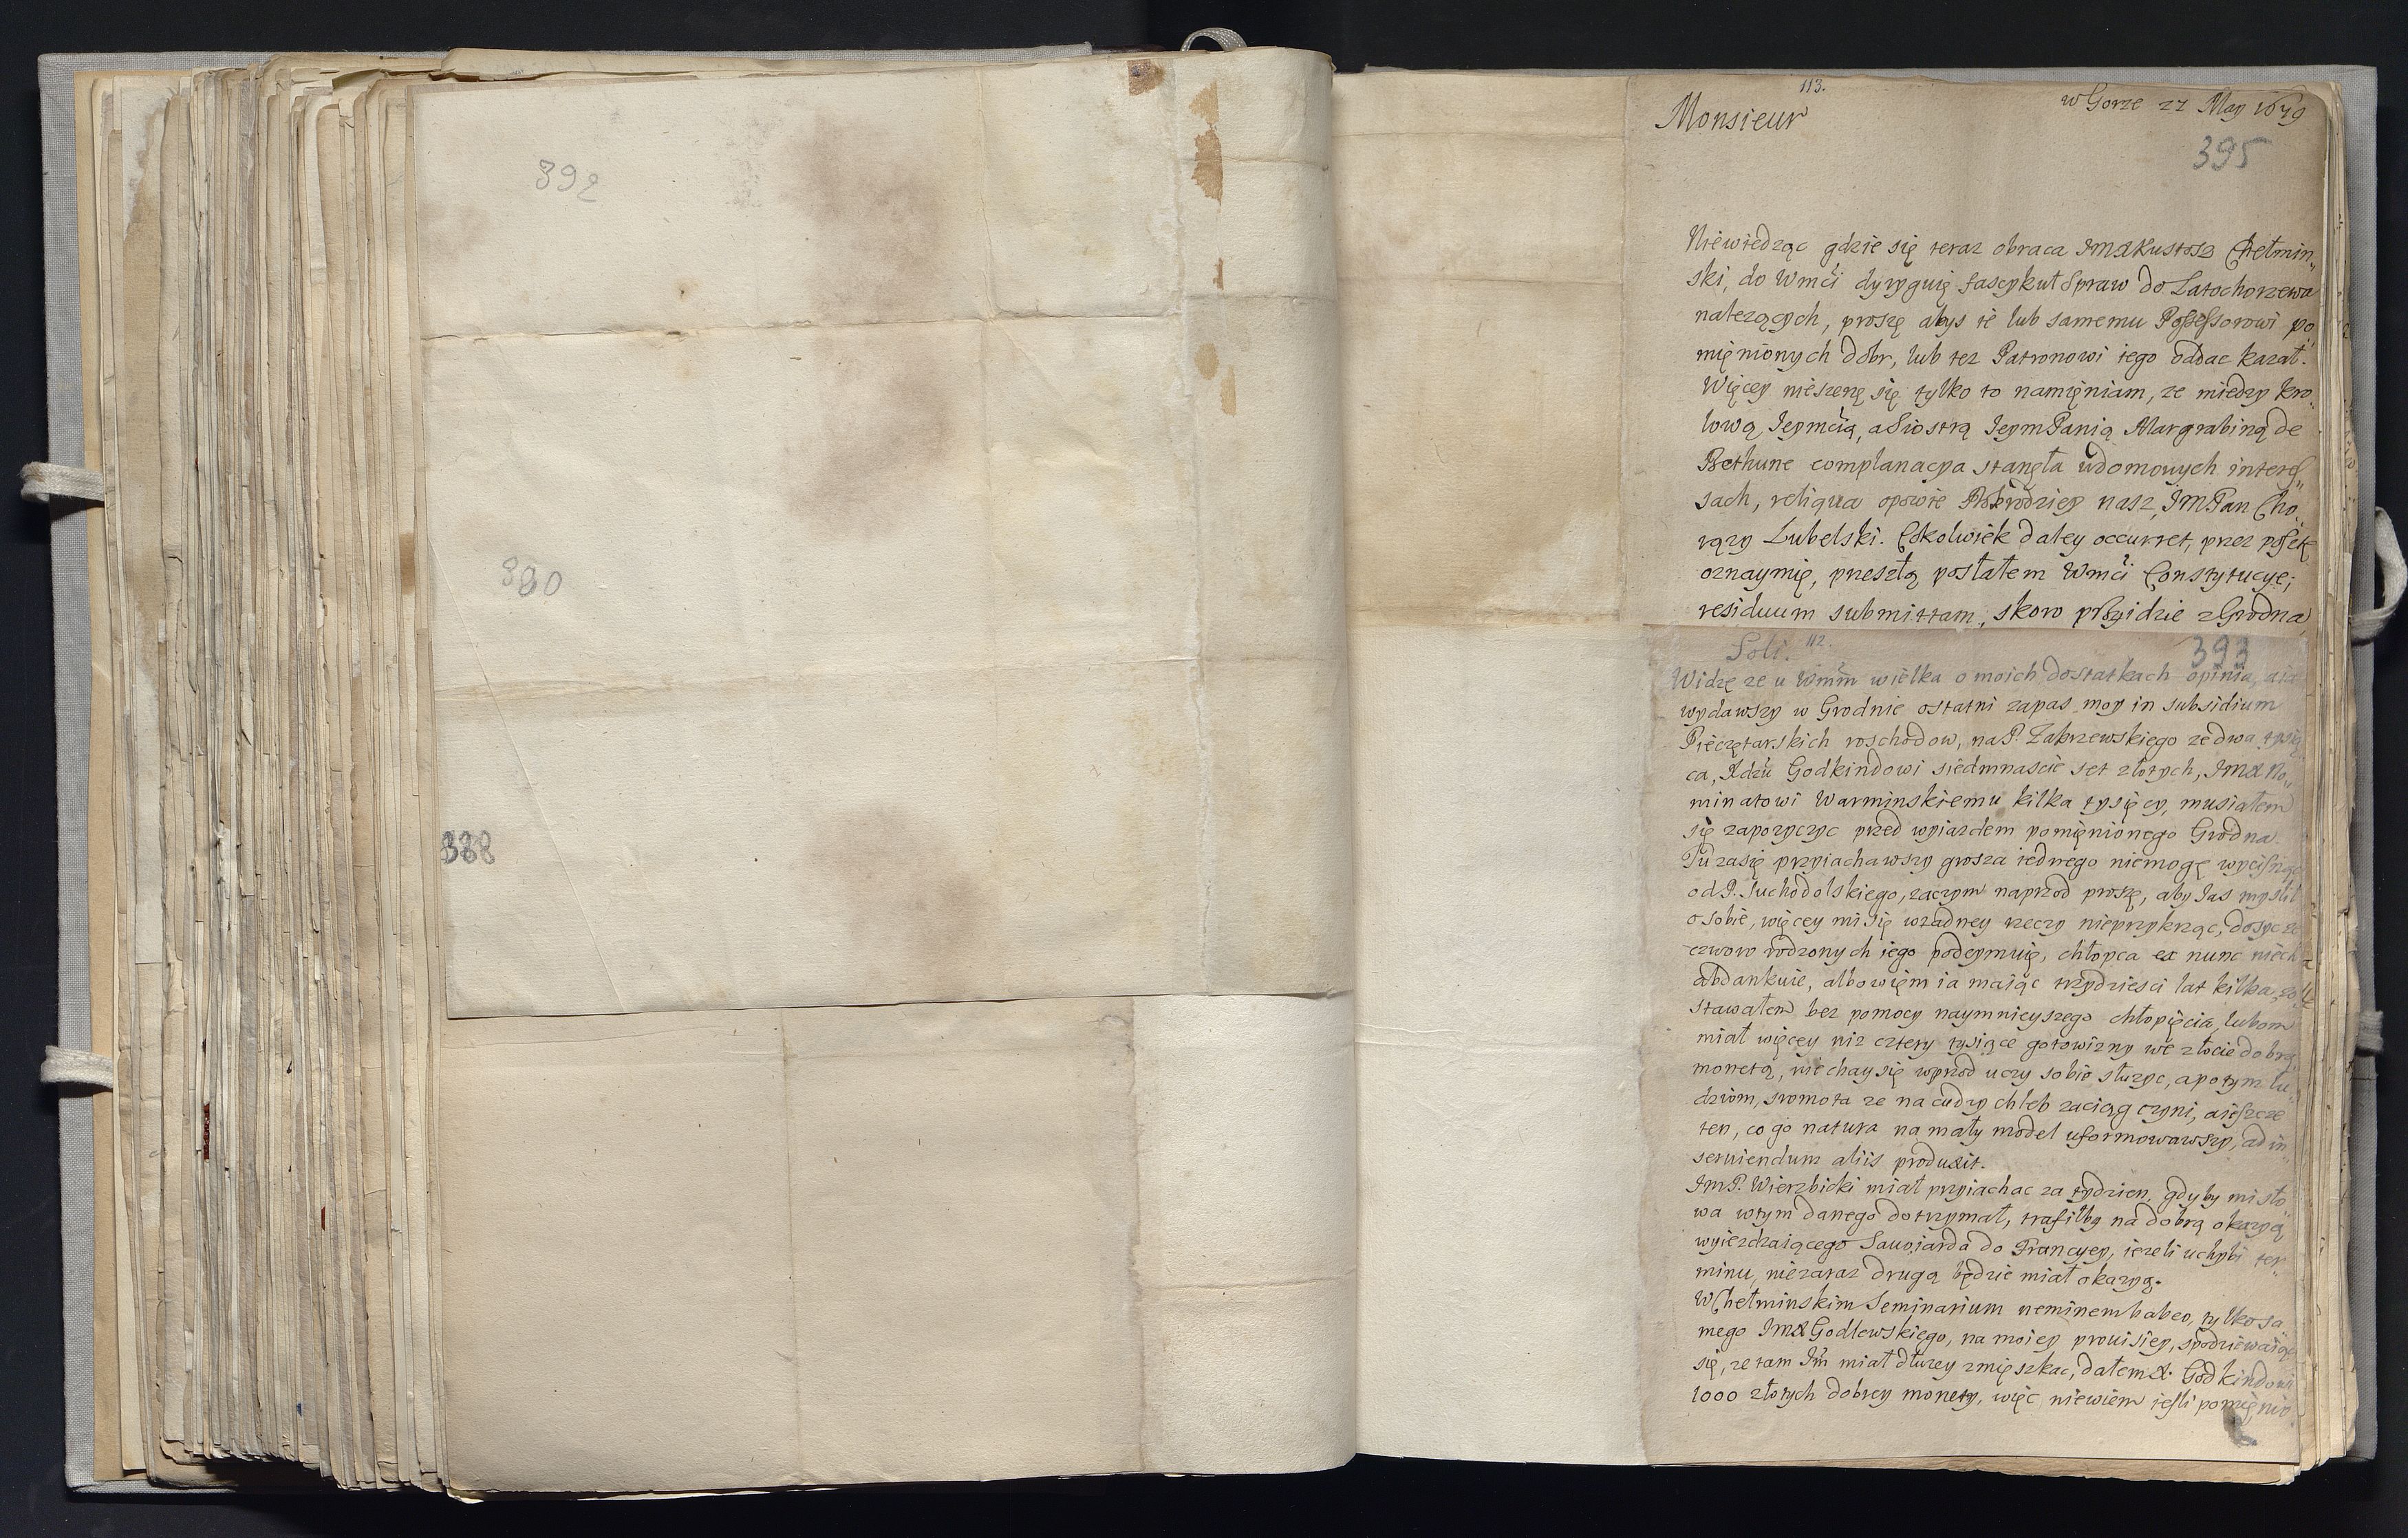 392
380
388
113.
w Gorze 27 Maÿ 1679
Monsieur
395
Niewiedząc gdzie się teraz obraca JMX Kustosz Chełmin„
ski, do Wmći dyryguię fascykuł Spraw do Zatochorzewa
należących, proszę abys ie lub samemu Possessorowi po„
mięnionych dobr, lub tez Patronowi iego oddac kazał.
Więcey nieszerzę się tylko to namięniam, ze miedzy kro„
lową Jeymcią, a Siostrą JeymPanią Margrabiną de
Bethune complanacya stanęła w domowych interes„
sach, reliqua opowie Dobrodziey nasz, JMPan Cho„
rązy Lubelski. Cokolwiek daley occurret, przez posztę
oznaymię, przeszłą posłałem Wmći Constytucye;
residuum submittam, skoro przyidzie z Grodna,
Soli. 112.
393
Widzę ze u Wmm wielka o moich dostatkach opinia, a ia
wydawszy w Grodnie ostatni zapas moy in subsidium
Pieczętarskich roschodow, na P. Zakrzewskiego ze dwa tysią„
ca, Xdzu Godkindowi siedmnascie set złotych, JMX No„
minatowi Warminskiemu kilka tysięcy, musiałem
się zapozyczyc przed wyiazdem pomięnionego Grodna.
Tu zasię przyiachawszy grosza iednego niemogę wycisnąc
od P. Suchodolskiego, zaczym naprzod proszę, aby Jas myslił
o sobie, więcey mi się wzadney rzeczy nieprzykrząc, dosyc ze
czworo rodzonych iego podeymuię, chłopca ex nunc niech
abdankuie, albowiem ia maiąc trzydziesci lat kilka, zo„
stawałem bez pomocy naymnieyszego chłopięcia, lubom
miał więcey niz cztery tysiące gotowizny we złocie dobrą
monetą, niechay się wprzod uczy sobie słuzyc, a potym lu„
dziom, sromota ze na cudzy chleb zaciąg czyni, a ieszcze
ten, co go natura na mały model uformowawszy, ad in„
seruiendum aliis produxit.
JmP. Wierzbicki miał przyiachac za tydzien, gdyby mi sło„
wa wtym danego dotrzymał, trafiłby na dobrą okazyą
wyiezdzaiącego Sauoiarda do Francyey, iezeli uchybi ter„
minu, niezaraz drugą będzie miał okazyą.
W Chełminskim Seminarium neminem habeo, tylko sa„
mego JMX Godlewskiego, na moiey prouisiey, spodziewaiąc
się, ze tam Jm miał dłuzey zmięszkac, dałem X. Godkindowi
1000 złotych dobrey monety, więc niewiem iesli pomięnio„